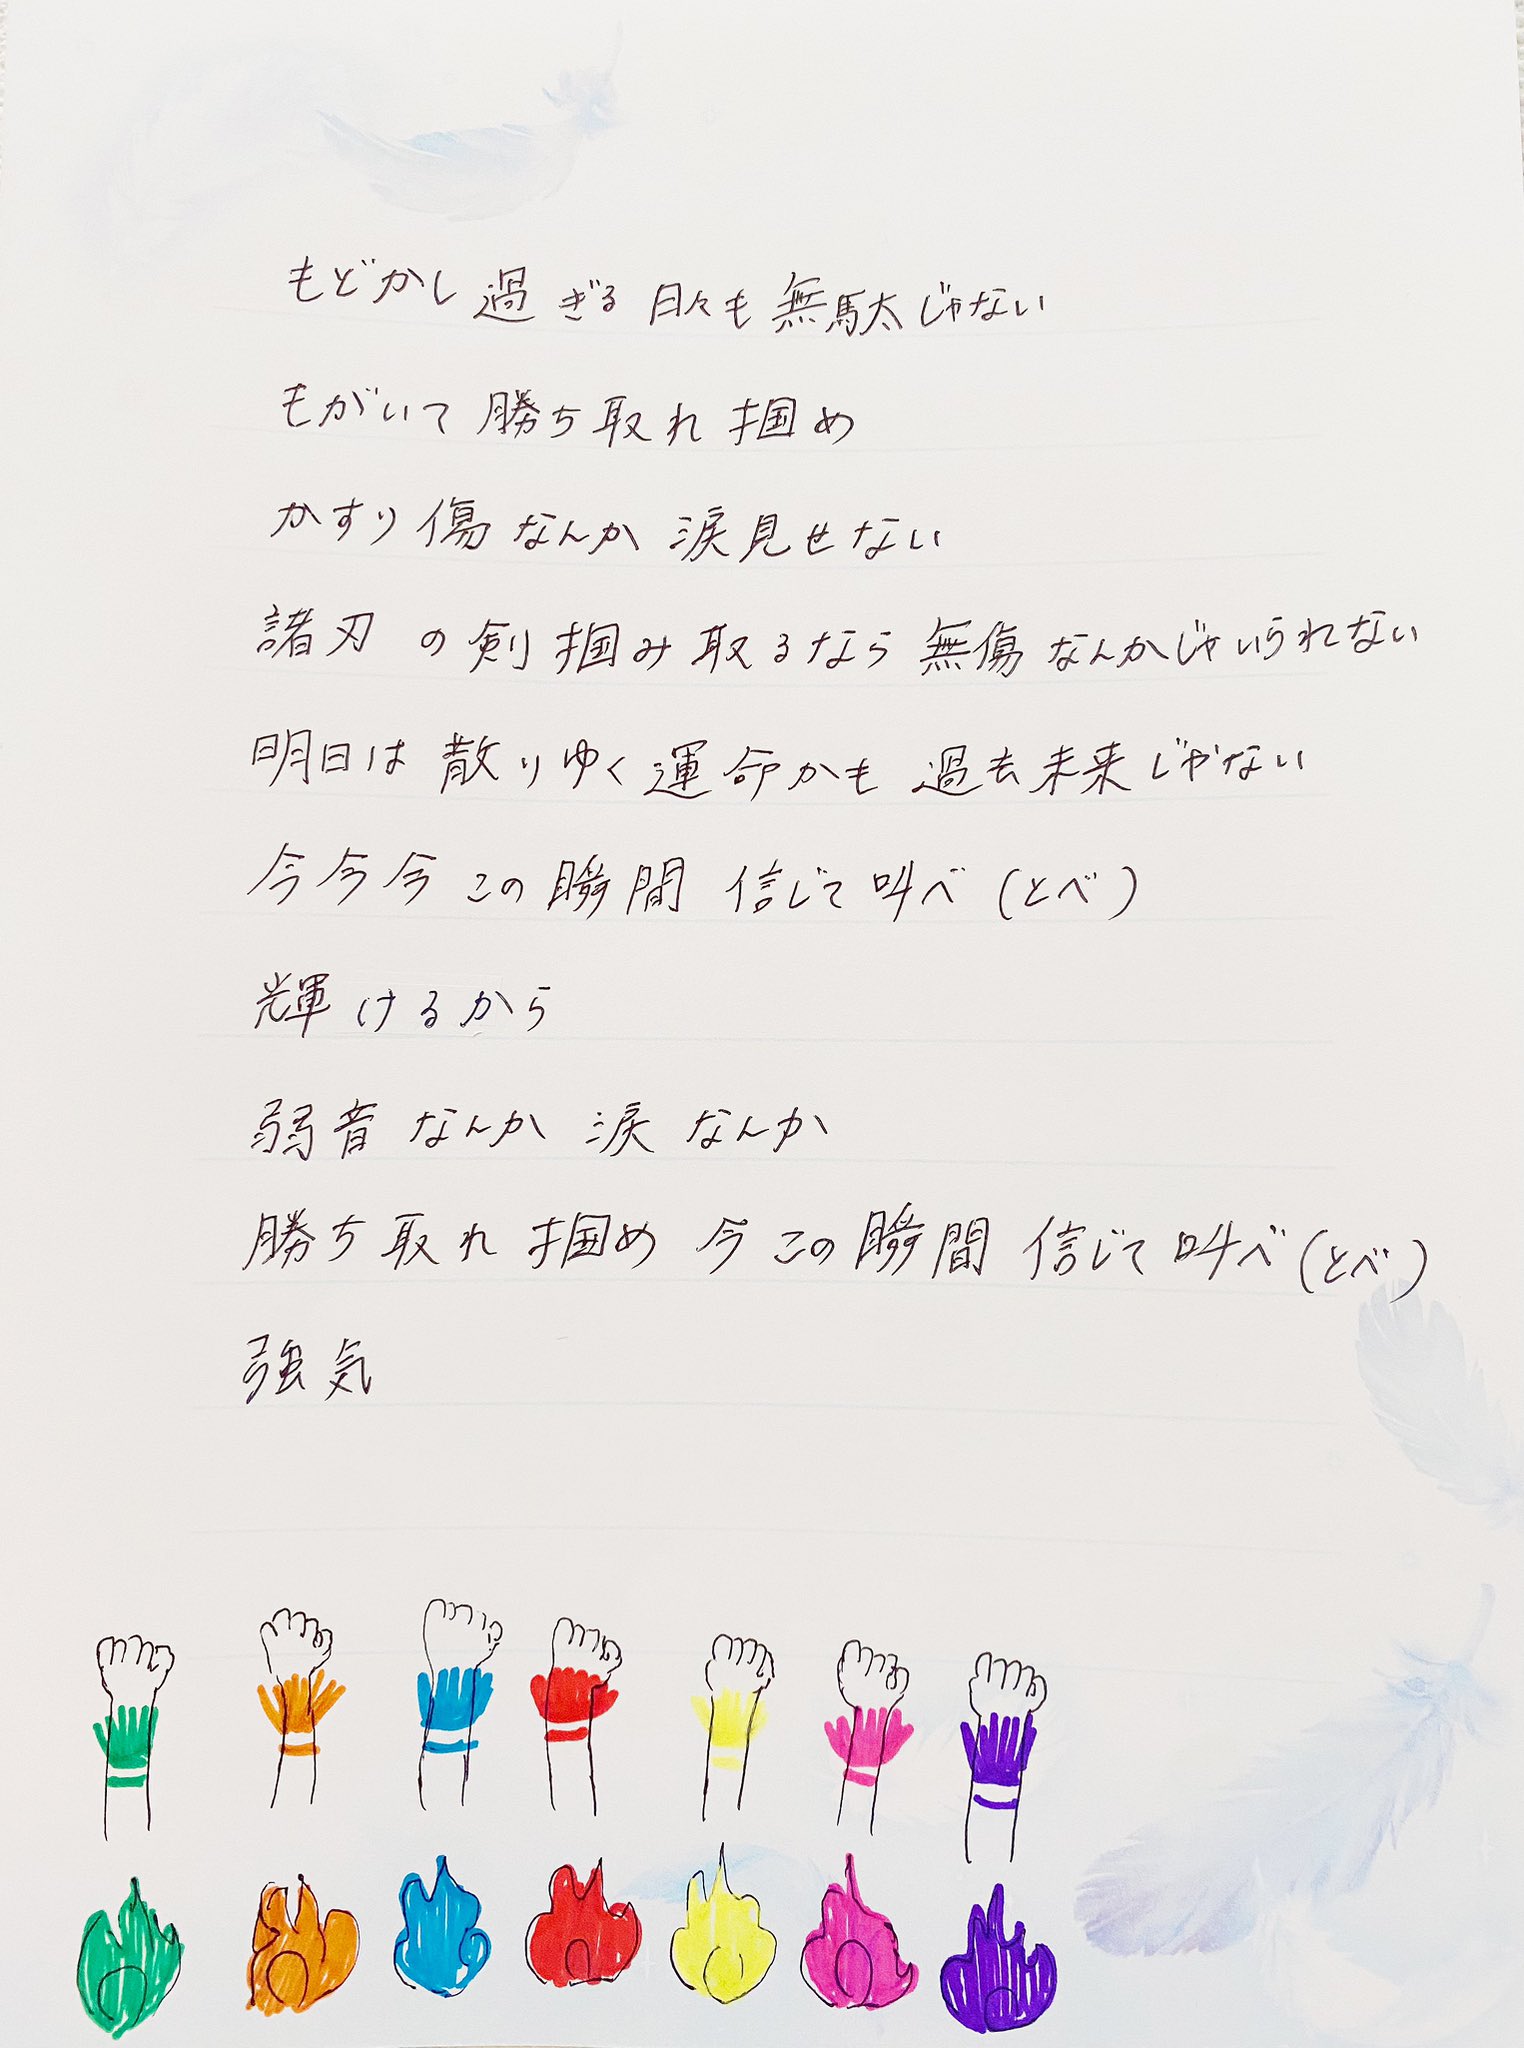 もどかし過ぎる日々も無駄じゃない
もがいて 勝ち取れ 掴め
かすり傷なんか 涙見せない
諸刃の剣 掴み取るなら 無傷なんかじゃいられない
明日は 散りゆく運命かも 過去未来じゃない
今今今 この瞬間 信じて叫べ(とべ)
輝けるから
弱音なんか 涙なんか
勝ち取れ 掴め 今 この瞬間 信じて叫べ(とべ)
強気